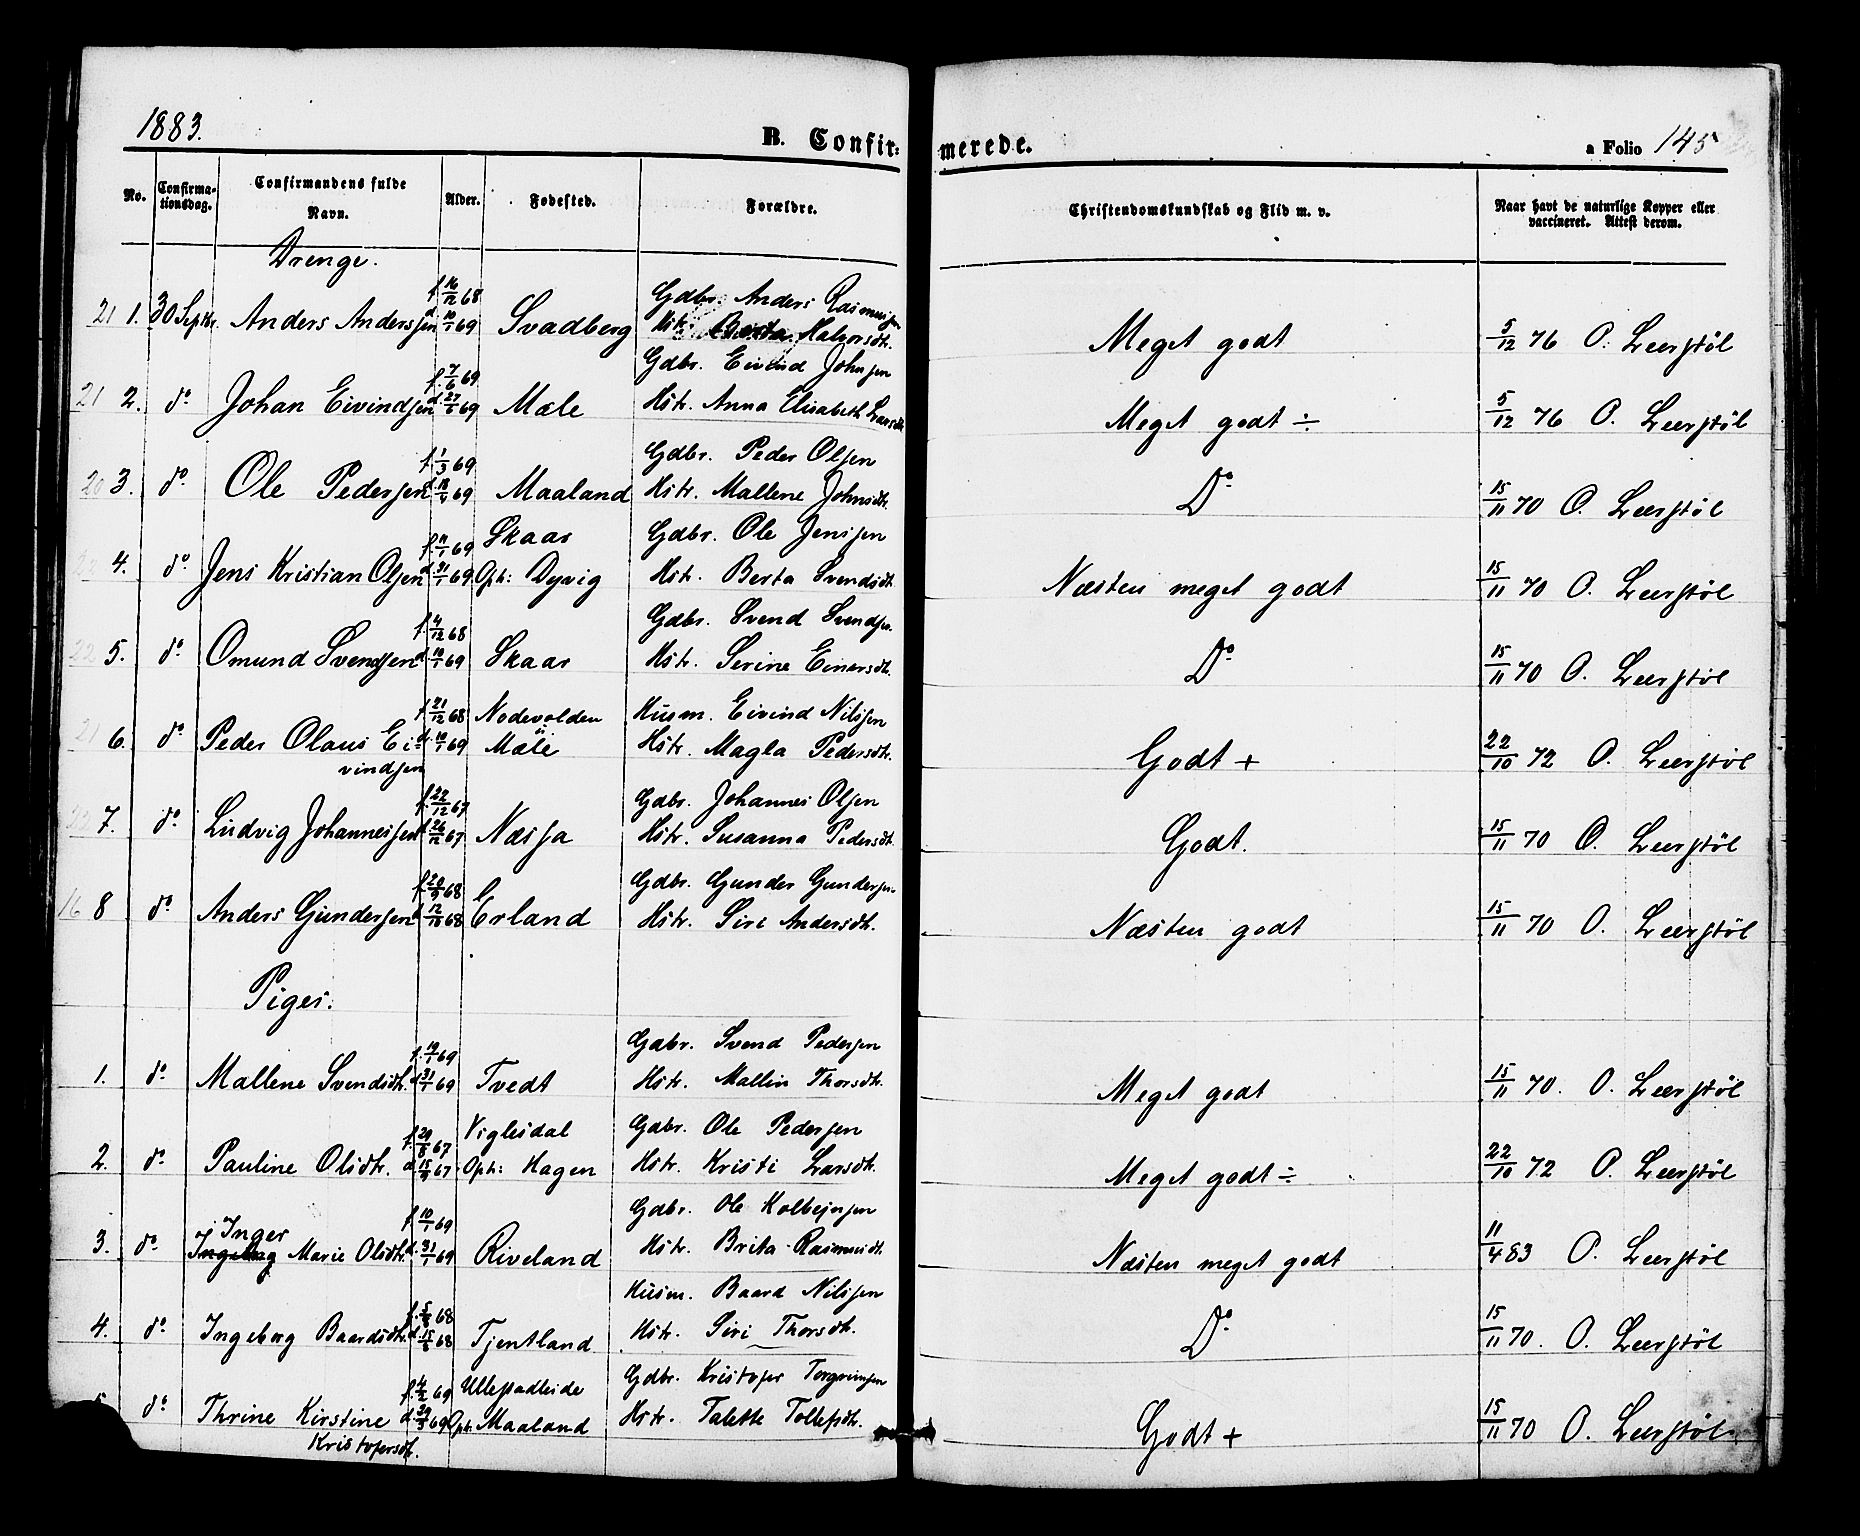 1883.
B. Confir:
merede.
a Folio 145
No.
Confirma-
tionsdag.
Confirmandens fulde
Navn.
Alder.
Fødested.
Forældre.
Christendomskundskab og Flid m. v.
Naar havt de naturlige Kopper eller
vaccineret. Attest derom.
Drenge.
21 1. 30 Septbr. Anders Andersen f. 16/12 68 d. 10/1 69 Svadberg Gdbr. Anders Rasmussen Hstr. Berta Halvorsdtr. Meget godt 5/12 76 O. Leerstøl
21 2. do Johan Eivindsen f. 7/6 69 d. 27/6 69 Mæle Gdbr. Eivind Johnsen Hstr. Anna Elisabeth Larsdtr. Meget godt ÷ 5/12 76 O. Leerstøl
20 3. do Ole Pedersen f. 1/3 69 d. 18/4 69 Maaland Gdbr. Peder Olsen Hstr. Mallene Johnsdtr. Do 15/11 70 O. Leerstøl
22 4. do Jens Kristian Olsen f. 11/1 69 d. 31/1 69 Skaar Oph: Dyvig Gdbr. Ole Jensen Hstr. Berta Svendsdtr. Næsten meget godt 15/11 70 O. Leerstøl
22 5. do Omund Svendsen f. 4/12 68 d. 10/1 69 Skaar Gdbr. Svend Svendsen Hstr. Serine Einersdtr. Do 15/11 70 O. Leerstøl
21 6. do Peder Olaus Ei-
vindsen f. 21/12 68 d. 10/1 69 Nodevolden u Mæle Husm. Eivind Nilsen Hstr. Magla Pedersdtr. Godt + 22/10 72 O. Leerstøl
7. do Ludvig Johannessen f. 22/12 67 d. 26/12 67 Næssa Gdbr. Johannes Olsen Hstr. Susanna Pedersdtr. Godt. 15/11 70 O. Leerstøl
16 8 do Anders Gundersen f. 20/9 68 d. 12/10 68 Erland Gdbr. Gunder Gundersen Hstr. Siri Andersdtr. Næsten godt 15/11 70 O. Leerstøl
Piger.
1. do Mallene Svendsdtr. f. 19/1 69 d. 31/1 69 Tvedt Gdbr. Svend Pedersen Hstr. Mallin Thorsdtr. Meget godt 15/11 70. O. Leerstøl
2. do Pauline Olsdtr. f. 29/8 67 d. 15/9 67 Viglesdal Oph: Hagen Gdbr. Ole Pedersen Hstr. Kristi Larsdtr. Meget godt ÷ 22/10 72 O. Leerstøl
Inger
3. do Ingeborg Marie Olsdtr. f. 10/1 69 d. 31/1 69 Riveland Gdbr. Ole Kolbejnsen Hstr. Brita Rasmusdtr. Næsten meget godt 11/4 83 O. Leerstøl
4. do Ingeborg Baardsdtr. 68 68 Tjentland Husm. Baard Nilsen Hstr. Siri Thorsdtr. Do 15/11 70. O. Leerstøl
do Thrine Kirstine
Kristofersdtr. f. 4/2 69 69 Ullestadleide Oph. Maaland Gdbr. Kristofer Torgrimsen Hstr. Talette Tollefsdtr. Godt + 15/11 70 O. Leerstøl